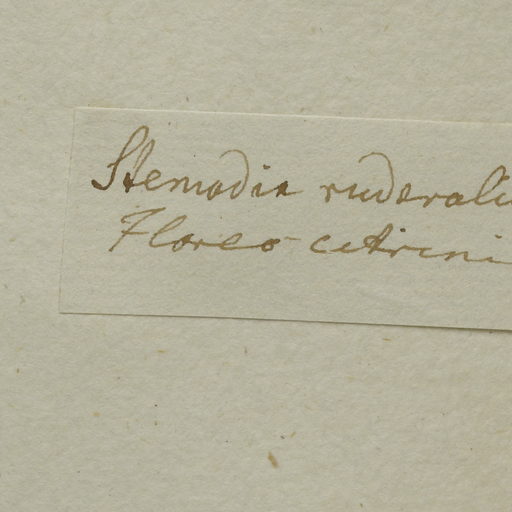 Stemodia ruderali
Flores citrini